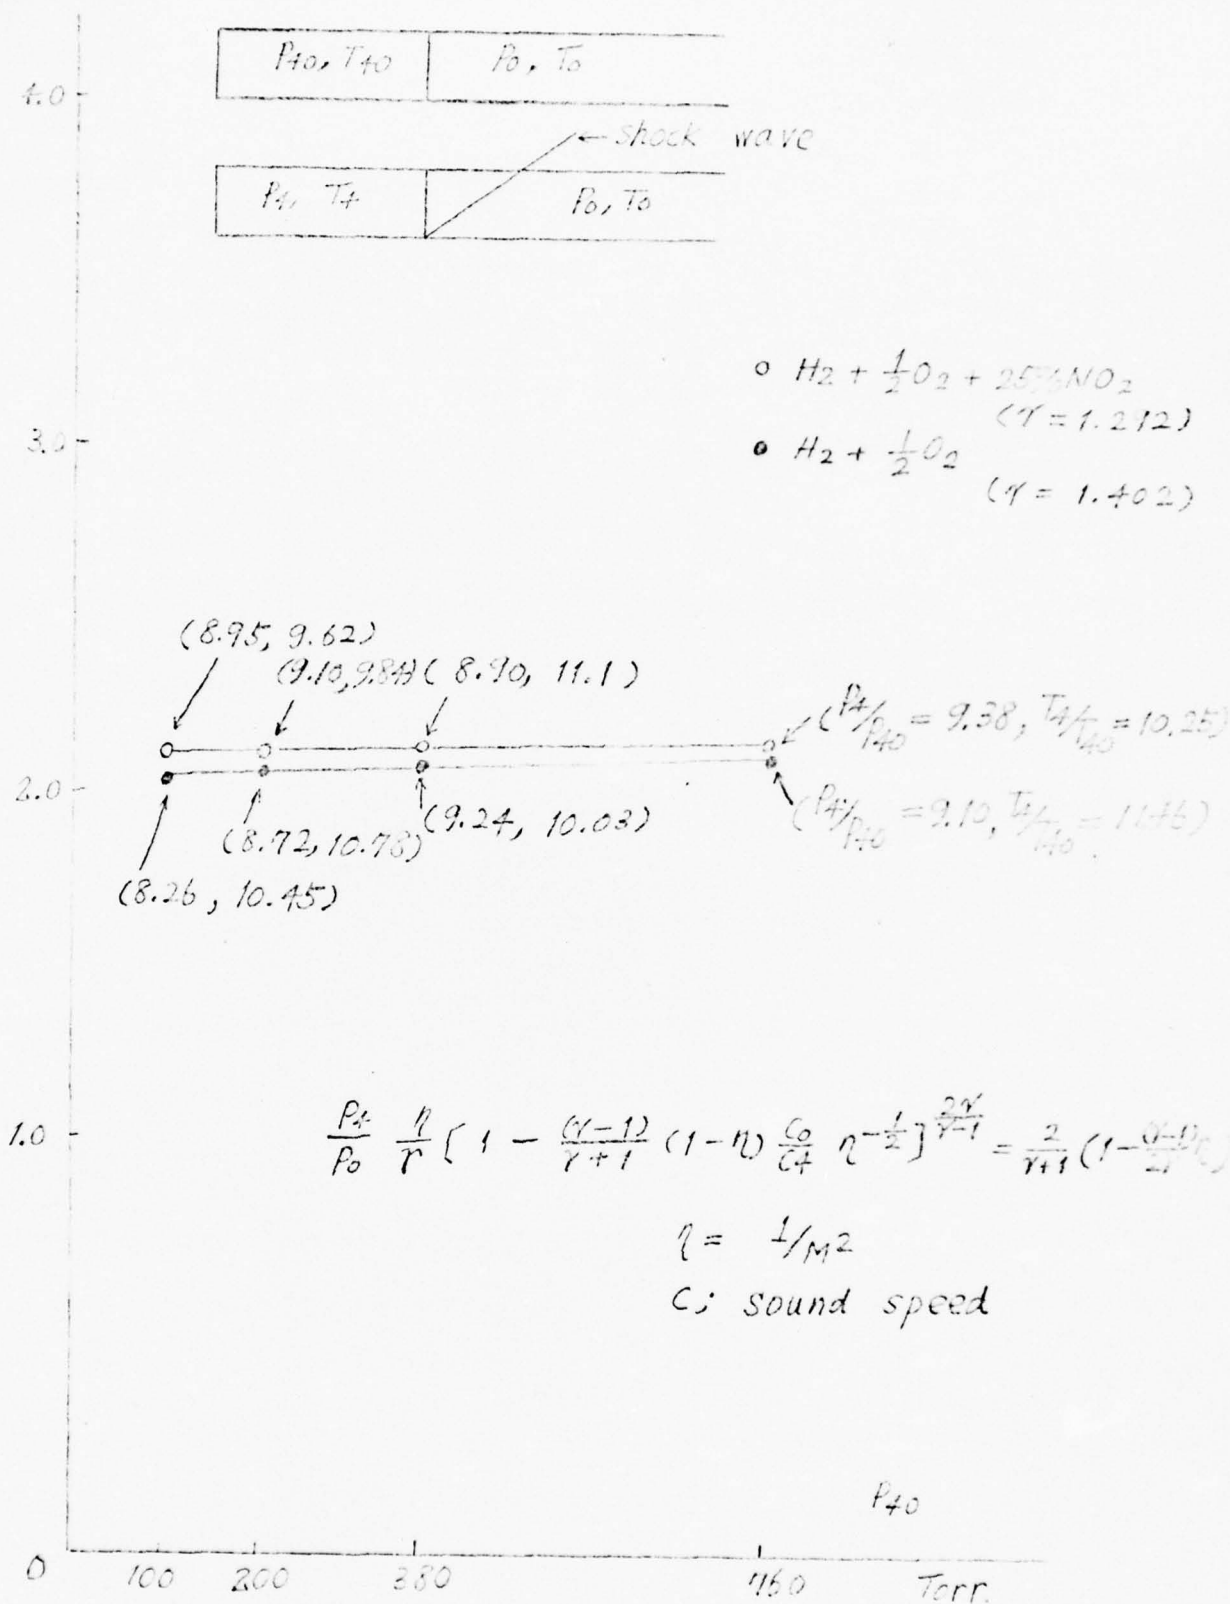 P40, T40 P0, T0
4.0
← shock wave
P4, T4 P0, T0
o H2 + 1/2 O2 + 25% NO2
(γ = 1.292)
3.0
● H2 + 1/2 O2
(γ = 1.402)
(8.95, 9.62)
(9.10, 9.84) (8.90, 11.1)
(P4/P40 = 9.38, T4/T40 = 10.25)
2.0
(8.72, 10.78) (9.24, 10.03) (P4/P40 = 9.10, T4/T40 = 11.46)
(8.26, 10.45)
1.0
P4/P0 η/γ [1 - (γ-1)/(γ+1) (1-η) C0/C4 η^(-1/2)]^(2γ/(γ-1)) = 2/(γ+1) (1 - (γ-1)/2γ η)
η = 1/M2
C; sound speed
P40
0 100 200 380 760 Torr.